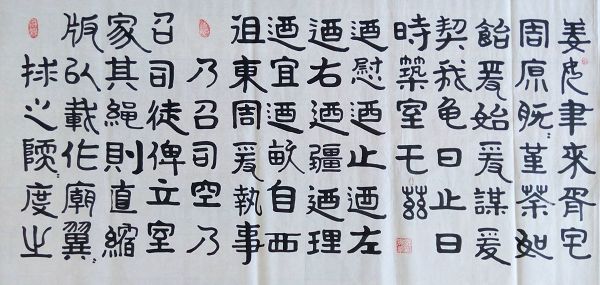 姜女聿來胥宇
周原膴〻堇荼如
飴爰始爰謀爰
契我龜曰止曰
時築室于茲
迺慰迺止迺左
迺右迺疆迺理
迺宣迺畝自西
徂東周爰執事
乃召司空乃
召司徒俾立室
家其繩則直縮
版以載作廟翼〻
捄之陾〻度之